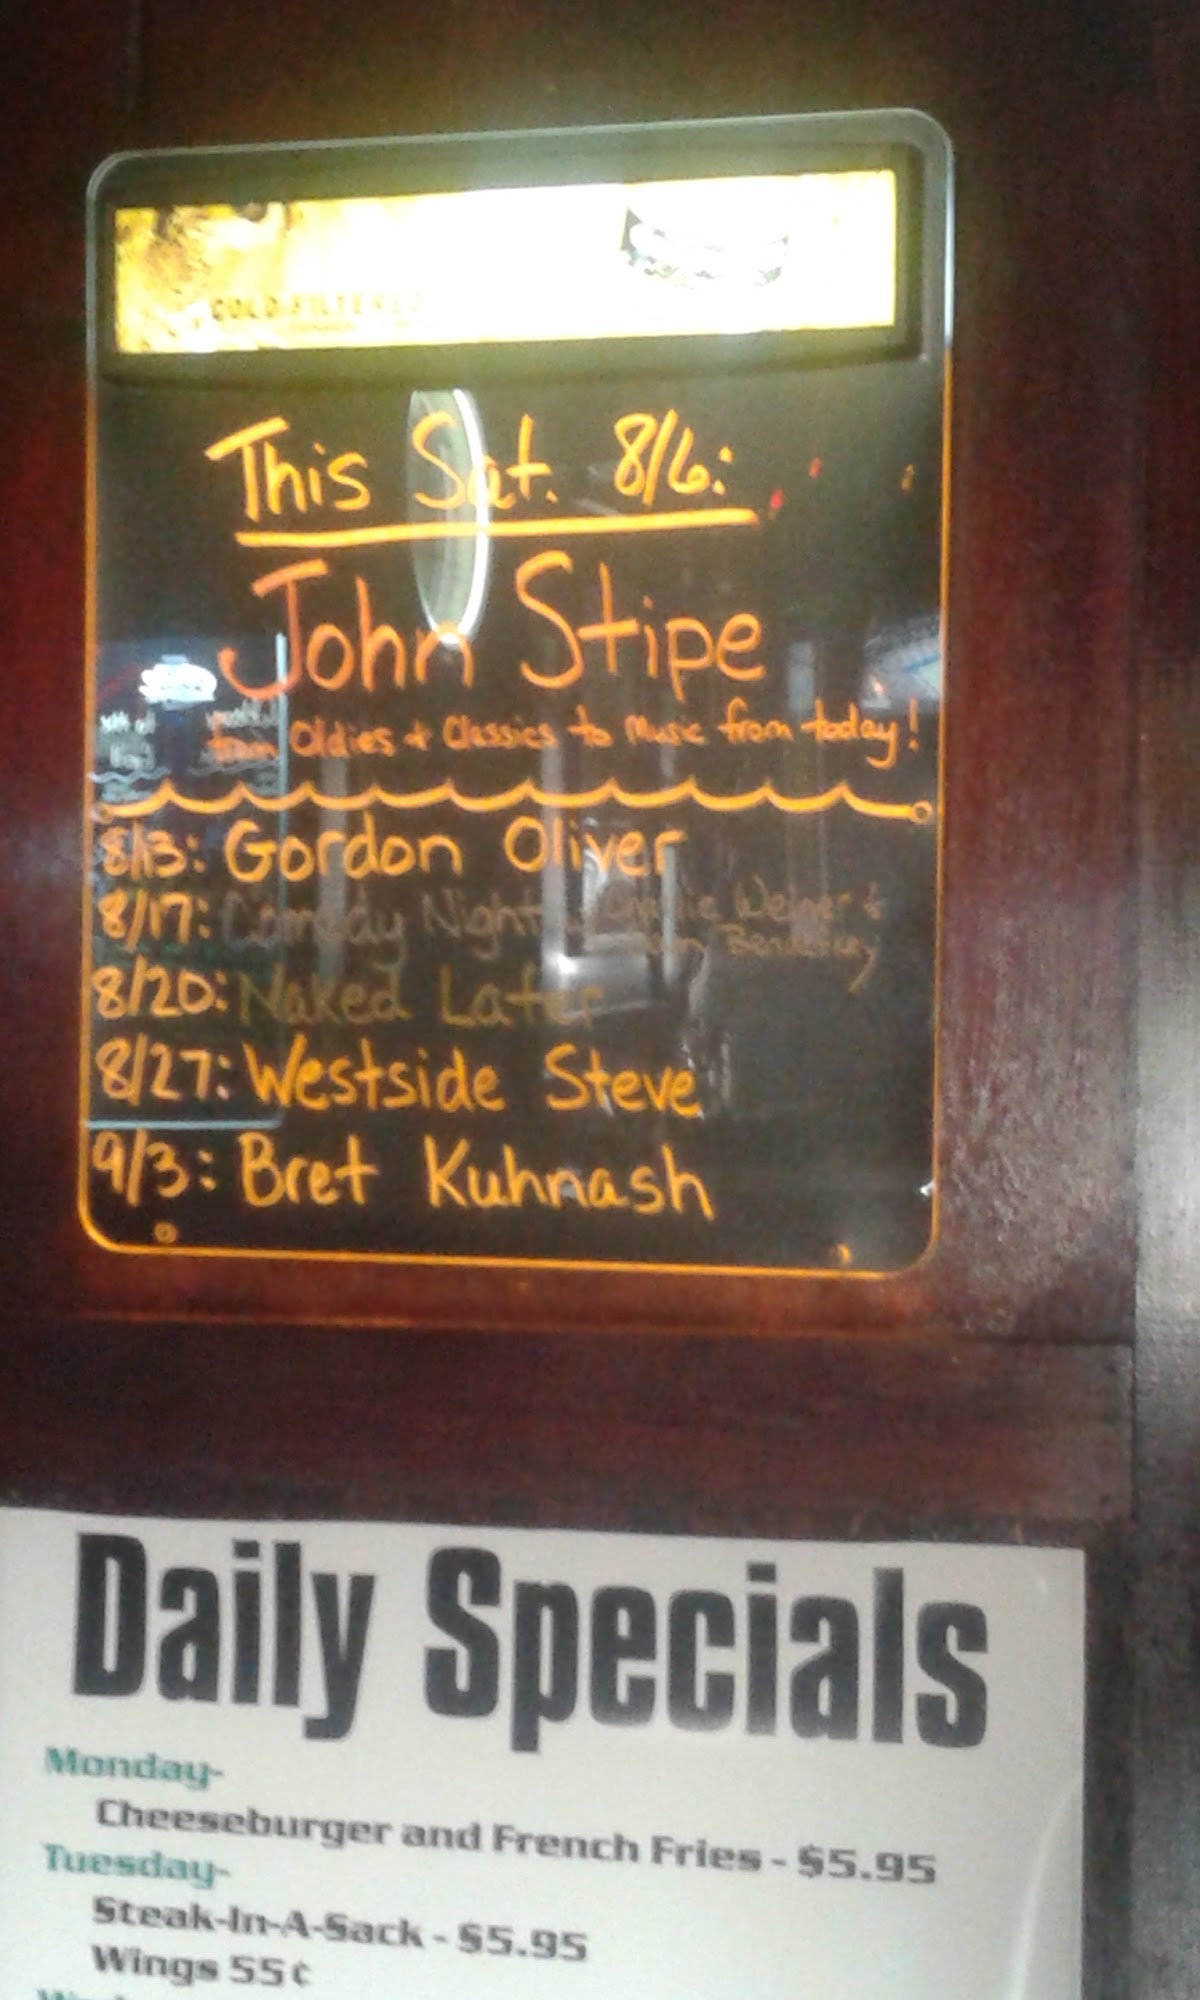 COLD FILTERED
This Sat. 8/6:
John Stipe
from Oldies + Classics to Music from today!
8/13: Gordon Oliver
8/17: Comedy Night
8/20: Naked Later
8/27: Westside Steve
9/3: Bret Kuhnash
Daily Specials
Monday-
Cheeseburger and French Fries - $5.95
Tuesday-
Steak-In-A-Sack - $5.95
Wings 55¢